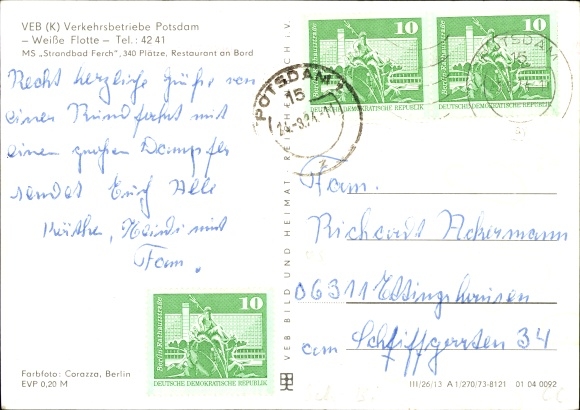 VEB (K) Verkehrsbetriebe Potsdam
— Weiße Flotte — Tel.: 42 41
MS „Strandbad Ferch", 340 Plätze, Restaurant an Bord
Recht herzliche Grüße von
einer Rundfahrt mit
einem großen Dampfer
sendet Euch Alle
Käthe, Heidi mit
Fam.
Farbfoto: Corazza, Berlin
EVP 0,20 M
10
Berlin · Rathausstraße
DEUTSCHE DEMOKRATISCHE REPUBLIK
VEB BILD UND HEIMAT · REICHENBACH I. V.
10
Berlin · Rathausstraße
DEUTSCHE DEMOKRATISCHE REPUBLIK
10
Berlin · Rathausstraße
DEUTSCHE DEMOKRATISCHE REPUBLIK
POTSDAM
15
POTSDAM
15
Fam.
Richard Ackermann
06311 Ettingshausen
am Schiffgarten 34
III/26/13 A 1/270/73-8121 01 04 0092